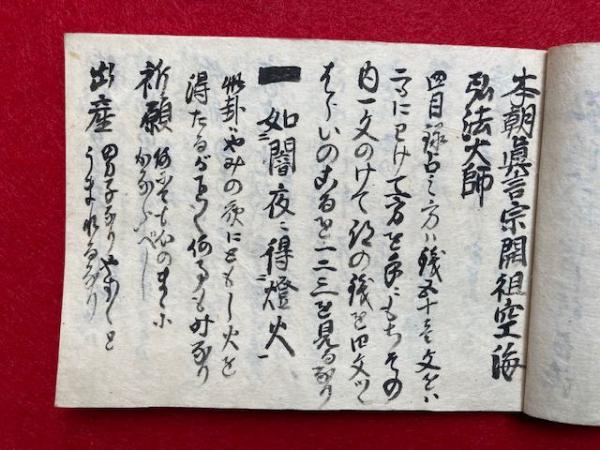 本朝眞言宗開祖空海
弘法大師
四目録占之方ハ銭五十文を
二つにわけて一方を手にもちその
内一文のけて残の銭を四文づゝ
はらいのこるを一二三を見るなり
一 如闇夜ニ得燈火
此卦ハやみの夜にともし火を
得たるがごとし何事も吉なり
祈願
かなふべし
出産 男子なりやすしと
うまれるなり